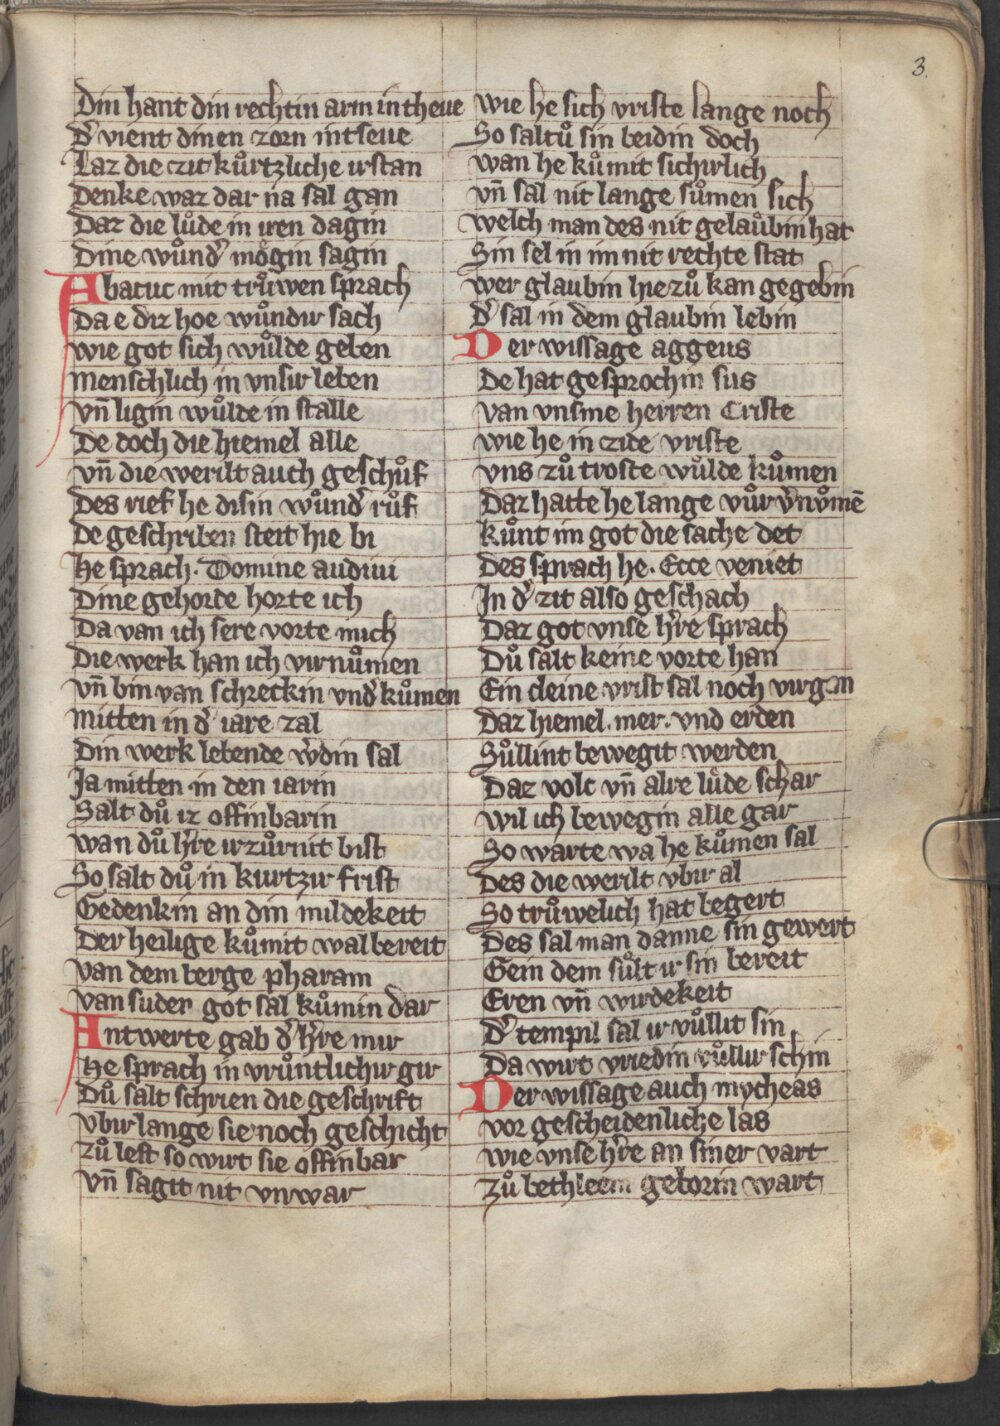 3.
Din hant din rechtin arm intheue
D' vient dinen zorn intseue
Laz die zit kůrtzliche irstan
Denke waz dar na sal gan
Daz die lůde in iren dagin
Dine wůnd' mogin sagin
Abacuc mit trůwen sprach
Da e diz hoe wůndir sach
wie got sich wůlde geben
menschlich in vnsir leben
vn̄ ligin wůlde in stalle
De doch die hiemel alle
vn̄ die werilt auch geschůf
Des rief he disin wůnd' růf
De geschriben steit hie bi
He sprach. Domine audiui
Dine gehorde horte ich
Da van ich sere vorte mich
Die werk han ich virnůmen
vn̄ bin van schreckin vnd' kůmen
mitten in d' iare zal
Din werk lebende w'din sal
Ja mitten in den iarin
Salt dů iz offinbarin
wan dů h're irzůrnit bist
So salt dů in kurtzir frist
Gedenkin an din mildekeit
Der heilige kůmit wal bereit
van dem berge pharam
van suder got sal kůmin dar
Antwerte gab d' h're mir
He sprach in vrůntlichir gir
Dů salt schrien die geschrift
vbir lange sie noch geschicht
zů lest so wirt sie offinbar
vn̄ sagit nit vnwar
wie he sich vriste lange noch
So saltů sin beidin doch
wan he kůmit sichirlich
vn̄ sal nit lange sůmen sich
welch man des nit gelaůbin hat
Sin sel in im nit rechte stat
wer glaubin hie zů kan gegebin
D' sal in dem glaubin lebin
Der wissage aggeus
De hat gesprochin sus
van vnsme herren Criste
wie he in zide vriste
vns zů troste wůlde kůmen
Daz hatte he lange vůr v'nomē
kůnt im got die sache det
Des sprach he. Ecce veniet
In d' zit also geschach
Daz got vnse h're sprach
Dů salt keine vorte han
Ein cleine vrist sal noch virgan
Daz hiemel. mer. vnd erden
Sůllint bewegit werden
Daz volc vn̄ alre lůde schar
wil ich bewegin alle gar
So warte wa he kůmen sal
Des die werilt vbir al
So trůwelich hat begert
Des sal man danne sin gewert
Gein dem sůlt ir sin bereit
Eren vn̄ wirdekeit
D' tempil sal ir vůllit sin
Da wirt vriedin vůllir schin
Der wissage auch mycheas
vor gescheidenliche las
wie vnse h're an siner vart
zů bethleem geborin wart